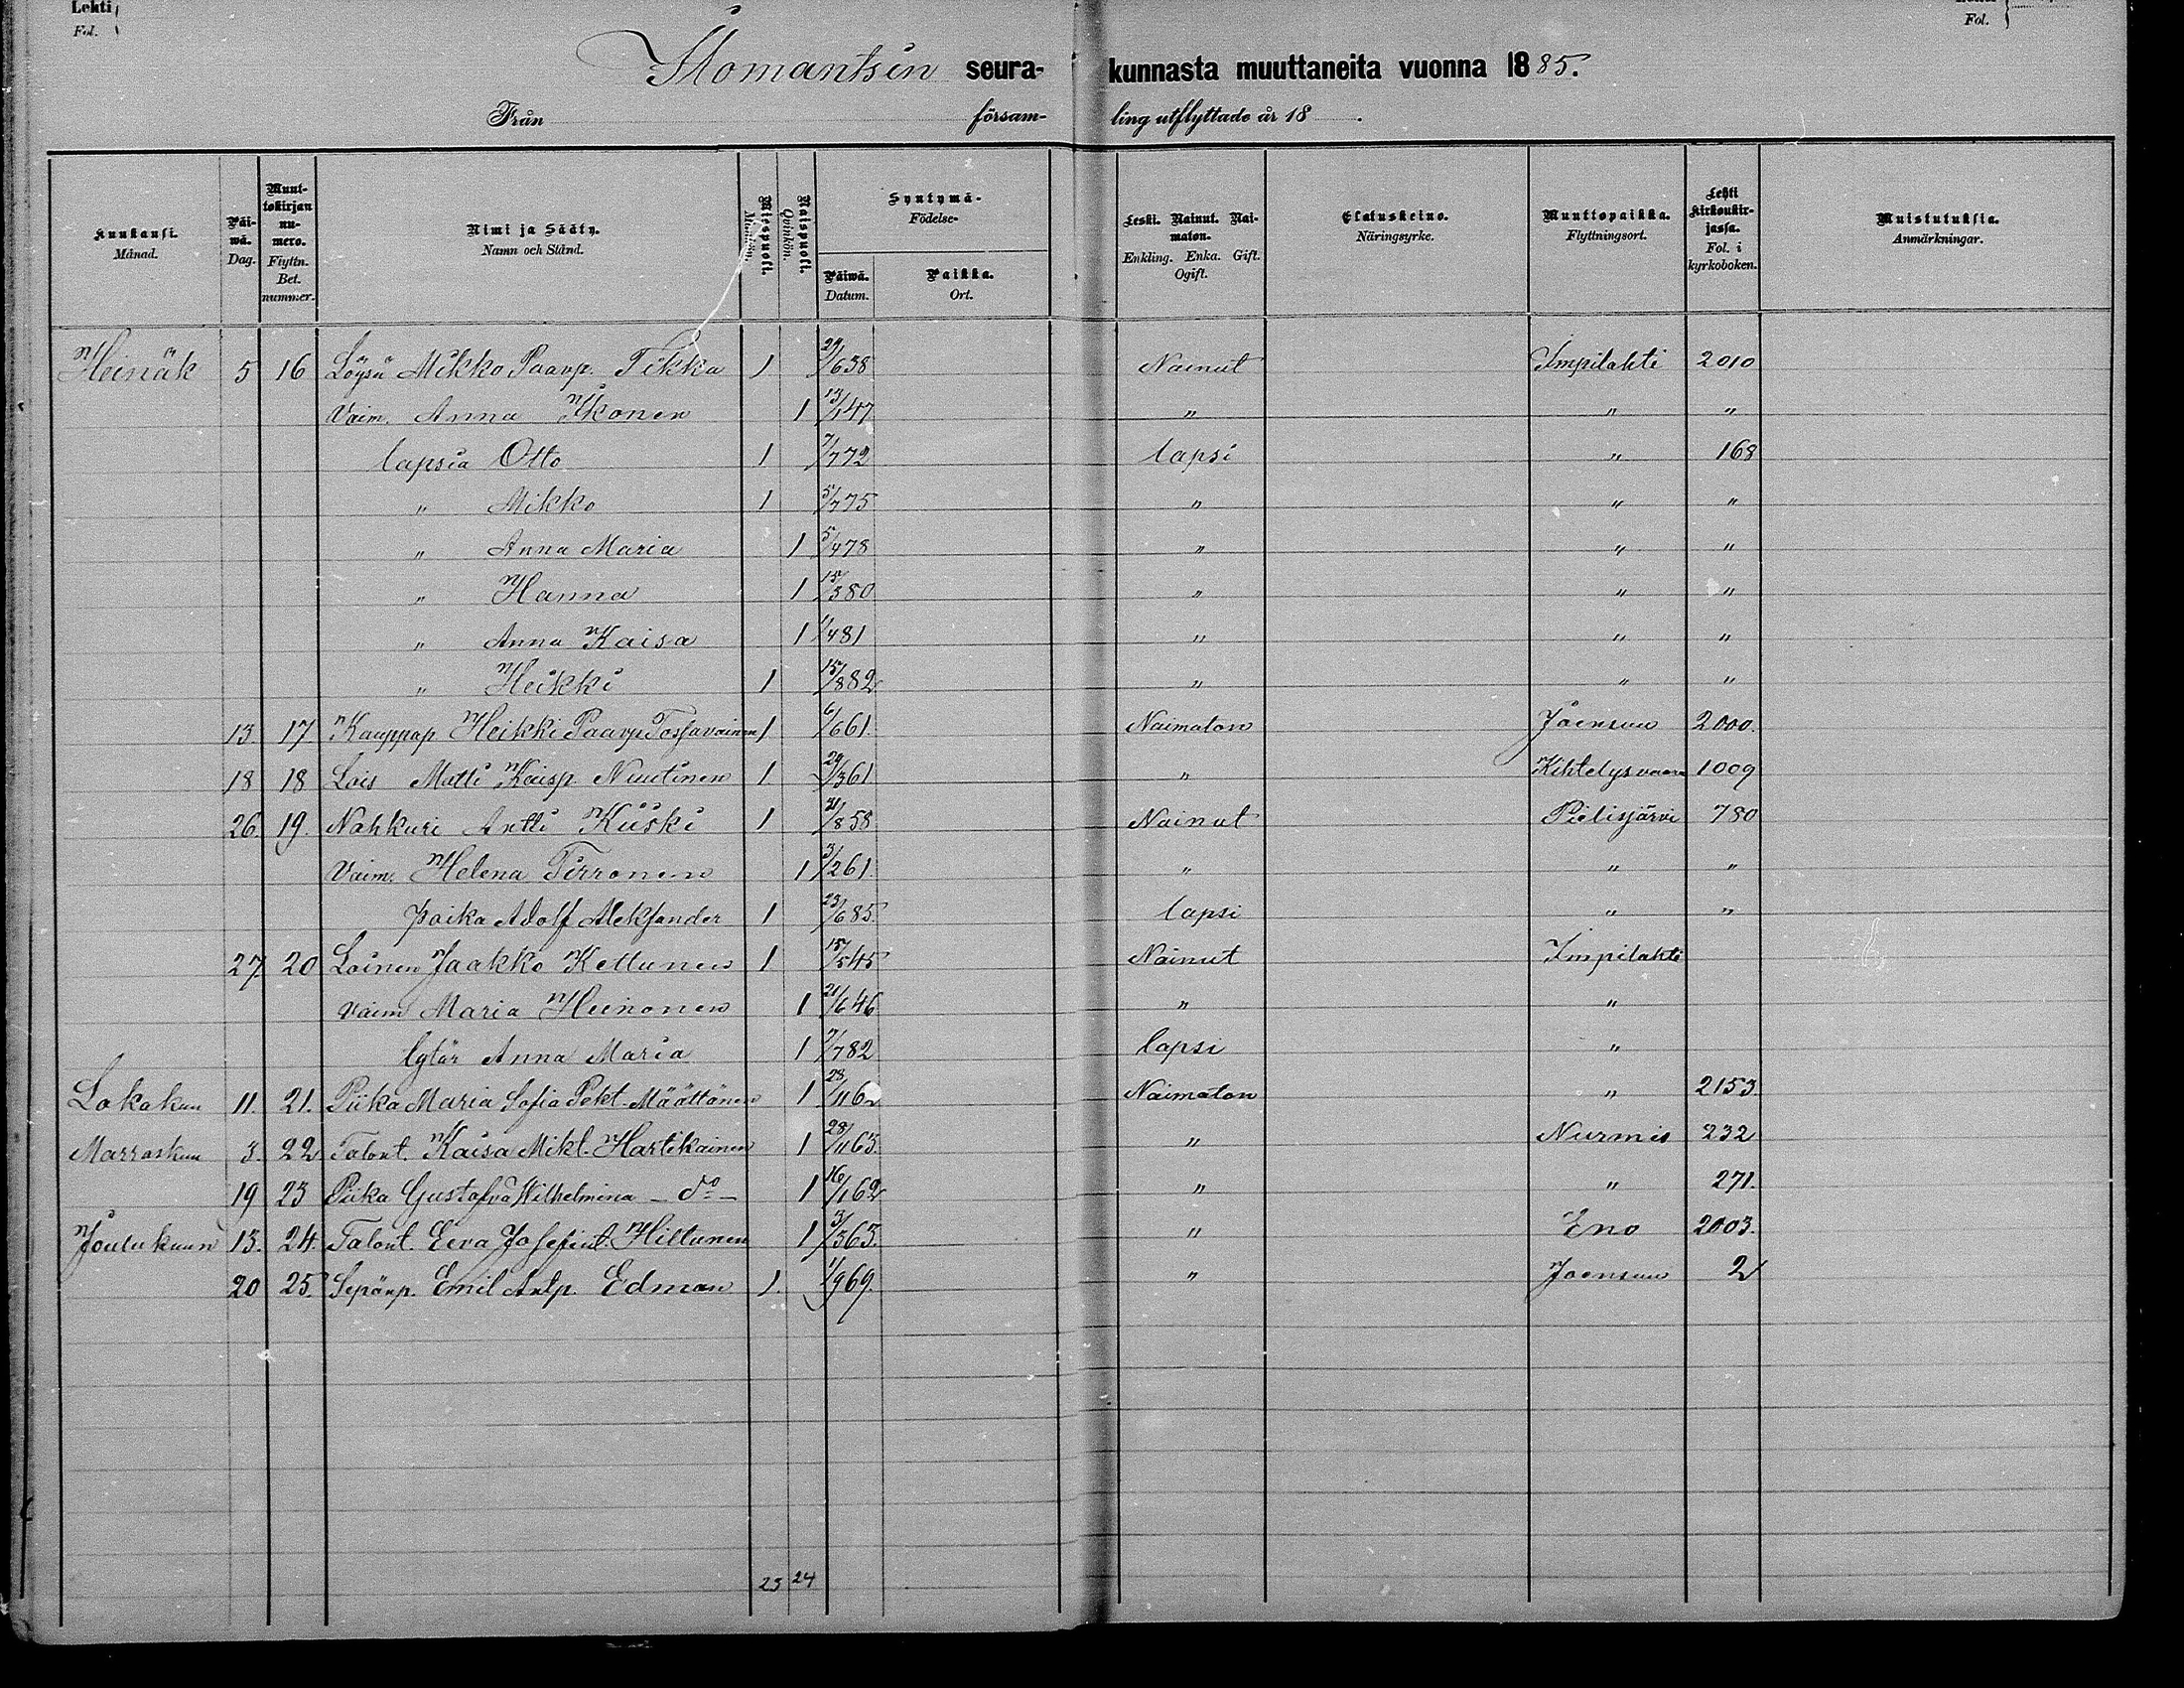 Lehti
Fol.
Fol.
Ilomantsin seura- kunnasta muuttaneita vuonna 1885.
Från församling utflyttade år 18 .
Kuukausi. Månad.
Päiwä. Dag.
Muuttokirjan numero. Flyttn. Bet. nummer.
Nimi ja Sääty. Namn och Stånd.
Miespuoli. Mankön.
Naispuoli. Qvinkön.
Syntymä- Födelse-
Päiwä. Datum.
Paikka. Ort.
Leski. Nainut. Naimaton. Enkling. Enka. Gift. Ogift.
Elatuskeino. Näringsyrke.
Muuttopaikka. Flyttningsort.
Lehti kirkonkirjassa. Fol. i kyrkoboken.
Muistutuksia. Anmärkningar.
Heinäk 5 16 Löysä Mikko Paavp. Tikka 1 29/638 Nainut Impilahti 2010
Vaim. Anna Ikonen 1 13/147 " " "
lapsia Otto 1 7/772 lapsi " 168
" Mikko 1 5/775 " " "
" Anna Maria 1 5/478 " " "
" Hanna 1 15/380 " " "
" Anna Kaisa 1 1/481 " " "
" Heikki 1 15/882 " " "
13. 17 Kauppap Heikki Paavp Tossavainen 1 6/661. Naimaton Joensuu 2000.
18 18 Lois Matti Kaisp. Nuutinen 1 29/361 " Kihtelysvaara 1009
26. 19. Nahkuri Antti Kiiski 1 21/858 Nainut Pielisjärvi 780
Vaim. Helena Tirronen 1 3/261. " " "
poika Adolf Aleksander 1 23/685. lapsi " "
27. 20 Loinen Jaakko Kettunen 1 15/545 Nainut Impilahti
vaim Maria Heinonen 1 21/646 " "
tytär Anna Maria 1 7/782 lapsi "
Lokakuu 11. 21. Piika Maria Sofia Pekt. Määttänen 1 28/1162 Naimaton " 2153.
Marraskuu 3. 22 Talont. Kaisa Mikt. Hartikainen 1 28/1163. " Nurmis 232
19 23 Piika Gustafva Wilhelmina - do - 1 16/162 " " 271.
Joulukuun 13. 24. Talont. Eeva Josefint. Hiltunen 1 3/363. " Eno 2003.
20 25. Sepänp. Emil Antp. Edman 1. 1/969. " Joensuu 2
23 24